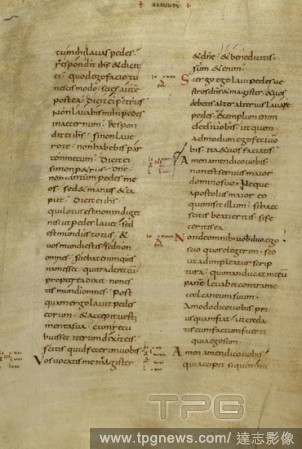 tu mihi lauas pedes
Respondit ihs & dicit
ei quod ego facio tu
nescis modo scies aute
postea Dicit ei petrus
Non lauabis mihi pedes
in aeternum Respon
dit ei ihs si non laue
ro te non habebis par
tem mecum Dicit ei
simon petrus dne
non tantum pedes me
os sed & manus & ca
put Dicit ei ihs
qui lotus est non indiget
nisi ut pedes lauet sed
est mundus totus &
uos mundi estis sed non
omnes sciebat enim quis
nam esset qui traderet eu
propterea dixit non es
tis mundi omnes Post
quam ergo lauit pedes
eorum & accepit uesti
menta sua cum recu
buisset iterum dixit eis
scitis quid fecerim uobis
Vos uocatis me magister
& dne & bene dicitis
sum & enim
Si ergo ego laui pedes ue
stros dns & magister & uos
debetis alter alterius lauare
pedes exemplum enim
dedi uobis ut quem
admodum ego feci uo
bis ita & uos faciatis
Amen amen dico uobis
non est seruus maior
domino suo Neque
apostolus maior eo
qui misit illum si haec
scitis beati eritis si fe
ceritis ea
Non de omnibus uobis dico ego
scio quos elegerim sed
ut adimpleatur scrip
tura qui manducat mecu
pane leuabit contra me
calcaneum suum
Amodo dico uobis prius
quam fiat ut creda
tis cum factum fuerit
quia ego sum
Amen amen dico uobis
qui accipit si quem mi
TPG
www.tpgnews.com / 達志影像